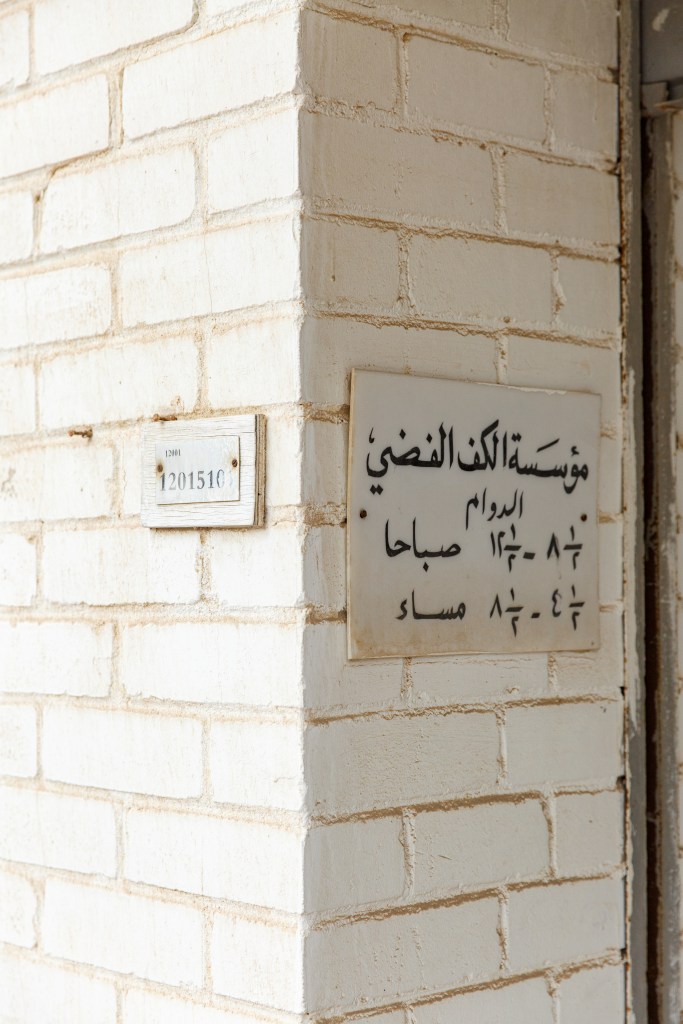 12001
1201510
مؤسسة الكف الفضي
الدوام
٨ ١/٢ - ١٢ ١/٢ صباحا
٤ ١/٢ - ٨ ١/٢ مساء